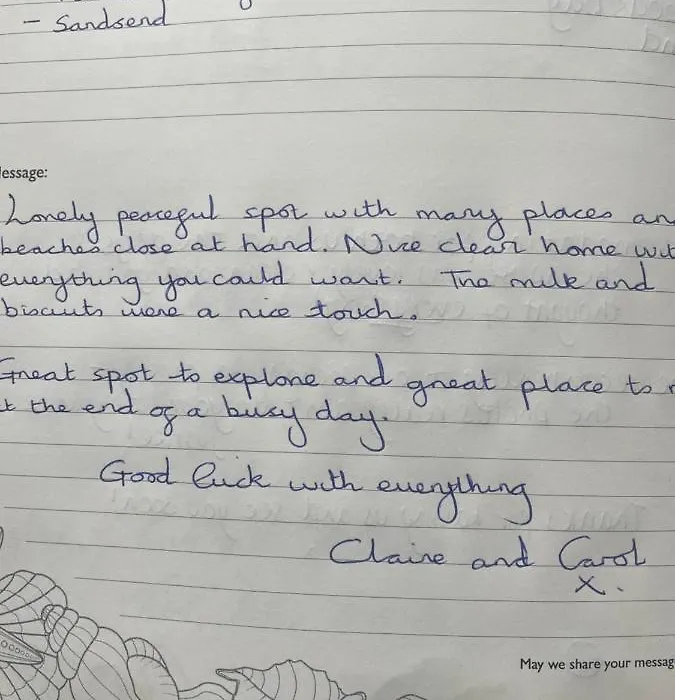 - Sandsend
essage:
Lonely peaceful spot with many places an
beaches close at hand. Nice clean home wit
everything you could want. The milk and
biscuits were a nice touch.
Great spot to explore and great place to r
t the end of a busy day.
Good luck with everything
Claire and Carol
x.
May we share your messag